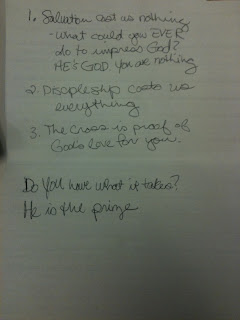 1. Salvation cost us nothing
- what could you EVER
do to impress God?
HE'S GOD. You are nothing
2. Discipleship costs us
everything
3. The cross is proof of
God's love for you.
Do You have what it takes?
He is the prize